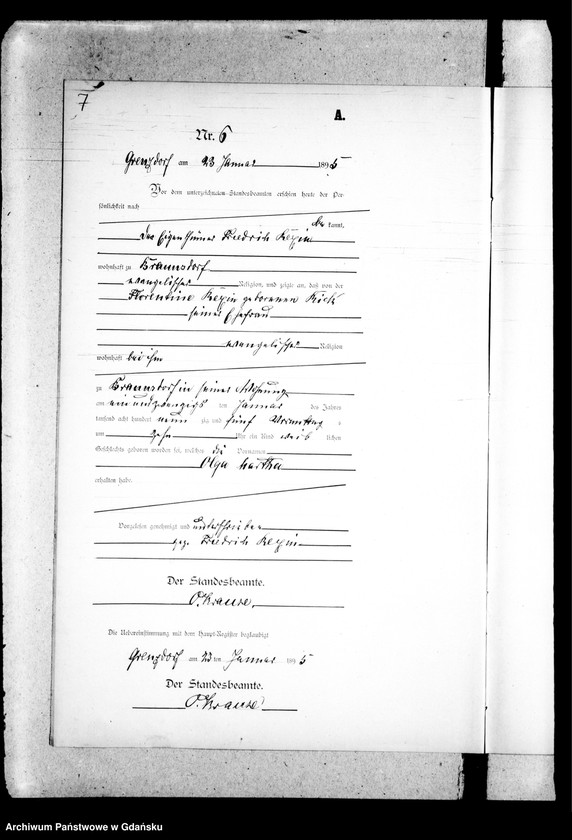 7
A.
Nr. 6
Grenzdorf am 23 Januar 1895
Vor dem unterzeichneten Standesbeamten erschien heute, der Per-
sönlichkeit nach
be kannt,
der Eigenthümer Friedrich
wohnhaft zu Braunsdorf
evangelischer Religion, und zeigte an, daß von der
Florentine geborenen Kick
seiner Ehefrau
evangelischer Religion
wohnhaft bei ihm
zu Braunsdorf in seiner Wohnung
am ein und zwanzigs ten Januar des Jahres
tausend acht hundert neun zig und fünf Vormittag s
um zehn Uhr ein Kind weib lichen
Geschlechts geboren worden sei, welches die Vornamen
Olga Martha
erhalten habe.
Vorgelesen, genehmigt und unterschrieben
gez. Friedrich
Der Standesbeamte.
O. Krause.
Die Uebereinstimmung mit dem Haupt-Register beglaubigt
Grenzdorf am 23 ten Januar 1895
Der Standesbeamte.
O. Krause
Archiwum Państwowe w Gdańsku